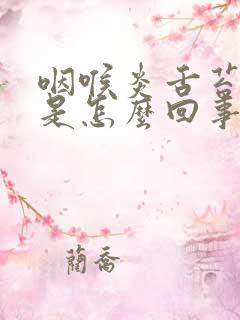 咽喉炎舌苔
是怎麼回事
蘭喬